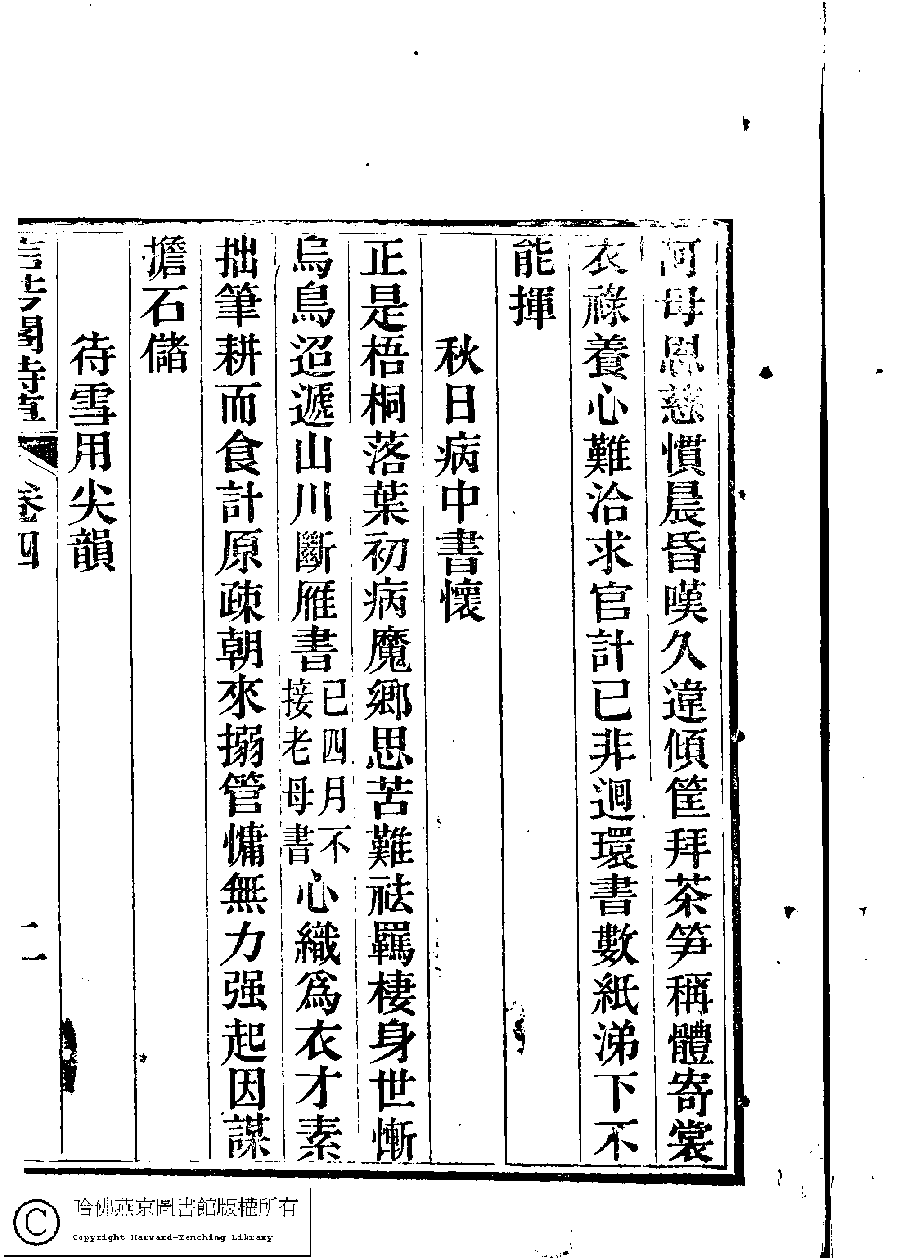 河母恩慈慣晨昏嘆久違傾筐拜茶笋稱體寄裳
衣祿養心難洽求官計已非迴環書數紙涕下不
能揮
秋日病中書懷
正是梧桐落葉初病魔鄉思苦難祛羈棲身世慚
烏鳥迢遞山川斷雁書已四月不接老母書心織爲衣才素
拙筆耕而食計原疎朝來搦管慵無力强起因謀
擔石儲
待雪用尖韻
卷四
二
哈佛燕京圖書館版權所有
Copyright Harvard-Yenching Library